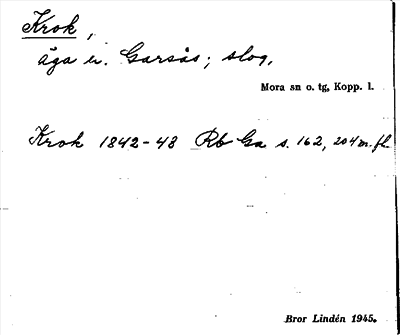 Krok,
äga u. Garsås; slog,
Mora sn o. tg, Kopp. l.
Krok 1842-48 Rb Ga s. 162, 204 m. fl.
Bror Lindén 1945.